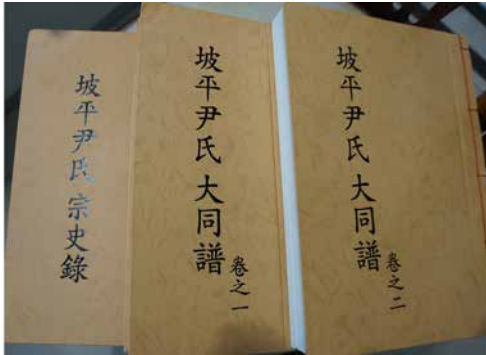 坡平尹氏 宗史錄
坡平尹氏 大同譜
卷之一
坡平尹氏 大同譜
卷之二